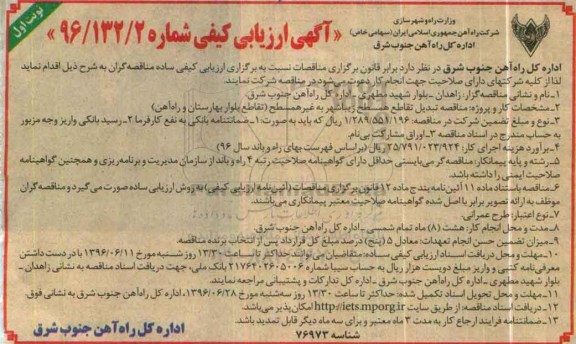 نوبت اول
وزارت راه و شهرسازی
شرکت راه آهن جمهوری اسلامی ایران (سهامی خاص)
اداره کل راه آهن جنوب شرق
« آگهی ارزیابی کیفی شماره ۹۶/۱۳۲/۲ »
اداره کل راه آهن جنوب شرق در نظر دارد برابر قانون برگزاری مناقصات نسبت به برگزاری ارزیابی کیفی ساده مناقصه گران به شرح ذیل اقدام نماید
لذا از کلیه شرکتهای دارای صلاحیت جهت انجام کار دعوت می شود در مناقصه شرکت نمایند.
۱ـ نام و نشانی مناقصه گزار: زاهدان - بلوار شهید مطهری - اداره کل راه آهن جنوب شرق.
۲ـ مشخصات کار و پروژه: مناقصه تبدیل تقاطع همسطح زیباشهر به غیرهمسطح (تقاطع بلوار بهارستان و راه آهن)
۳ـ نوع و مبلغ تضمین شرکت در مناقصه: ۱/۲۸۹/۵۵۱/۱۹۶ ریال که باید به صورت: ۱ـ ضمانتنامه بانکی به نفع کارفرما ۲ـ رسید بانکی واریز وجه مزبور
به حساب مندرج در اسناد مناقصه ۳ـ اوراق مشارکت بی نام.
۴ـ برآورد هزینه اجرای کار: ۲۵/۷۹۱/۰۲۳/۹۲۴ ریال (براساس فهرست بهای راه و باند سال ۹۶)
۵ـ رشته و پایه پیمانکار: مناقصه گر می بایستی حداقل دارای گواهینامه صلاحیت رتبه ۴ راه و باند از سازمان مدیریت و برنامه ریزی و همچنین گواهینامه
صلاحیت ایمنی را داشته باشد.
۶ـ مناقصه باستناد ماده ۱۱ آئین نامه بند ج ماده ۱۲ قانون برگزاری مناقصات (آئین نامه ارزیابی کیفی) به روش ارزیابی ساده صورت می گیرد و مناقصه گران
موظف به ارائه تصویر برابر با اصل شده گواهینامه صلاحیت معتبر پیمانکاری می باشند.
۷ـ نوع اعتبار: طرح عمرانی.
۸ـ مدت و محل انجام کار: هشت (۸) ماه تمام شمسی - اداره کل راه آهن جنوب شرق.
۹ـ میزان تضمین حسن انجام تعهدات: معادل ۵ (پنج) درصد مبلغ کل قرارداد پس از انتخاب برنده مناقصه.
۱۰ـ مهلت و محل دریافت اسناد ارزیابی کیفی ساده: متقاضیان می توانند حداکثر تا ساعت ۱۳/۳۰ روز شنبه مورخ ۱۳۹۶/۰۶/۱۱ با در دست داشتن
معرفی نامه کتبی و واریز مبلغ دویست هزار ریال به حساب سیبا شماره ۲۱۷۶۴۰۲۶۰۵۰۰۶ بانک ملی، جهت دریافت اسناد مناقصه به نشانی زاهدان -
بلوار شهید مطهری - اداره کل راه آهن جنوب شرق - اداره کل تدارکات و پشتیبانی مراجعه نمایند.
۱۱ـ مهلت و محل تحویل اسناد تکمیل شده: حداکثر تا ساعت ۱۳/۳۰ روز سه شنبه مورخ ۱۳۹۶/۰۶/۲۸، اداره کل راه آهن جنوب شرق به نشانی فوق
۱۲ـ دریافت اسناد مناقصه: از طریق سایت http://iets.mporg.ir امکان پذیر می باشد.
۱۳ـ ضمانتنامه فرایند ارجاع کار به مدت ۳ ماه معتبر و برای سه ماه دیگر قابل تمدید باشد.
شناسه ۷۶۹۷۳
اداره کل راه آهن جنوب شرق